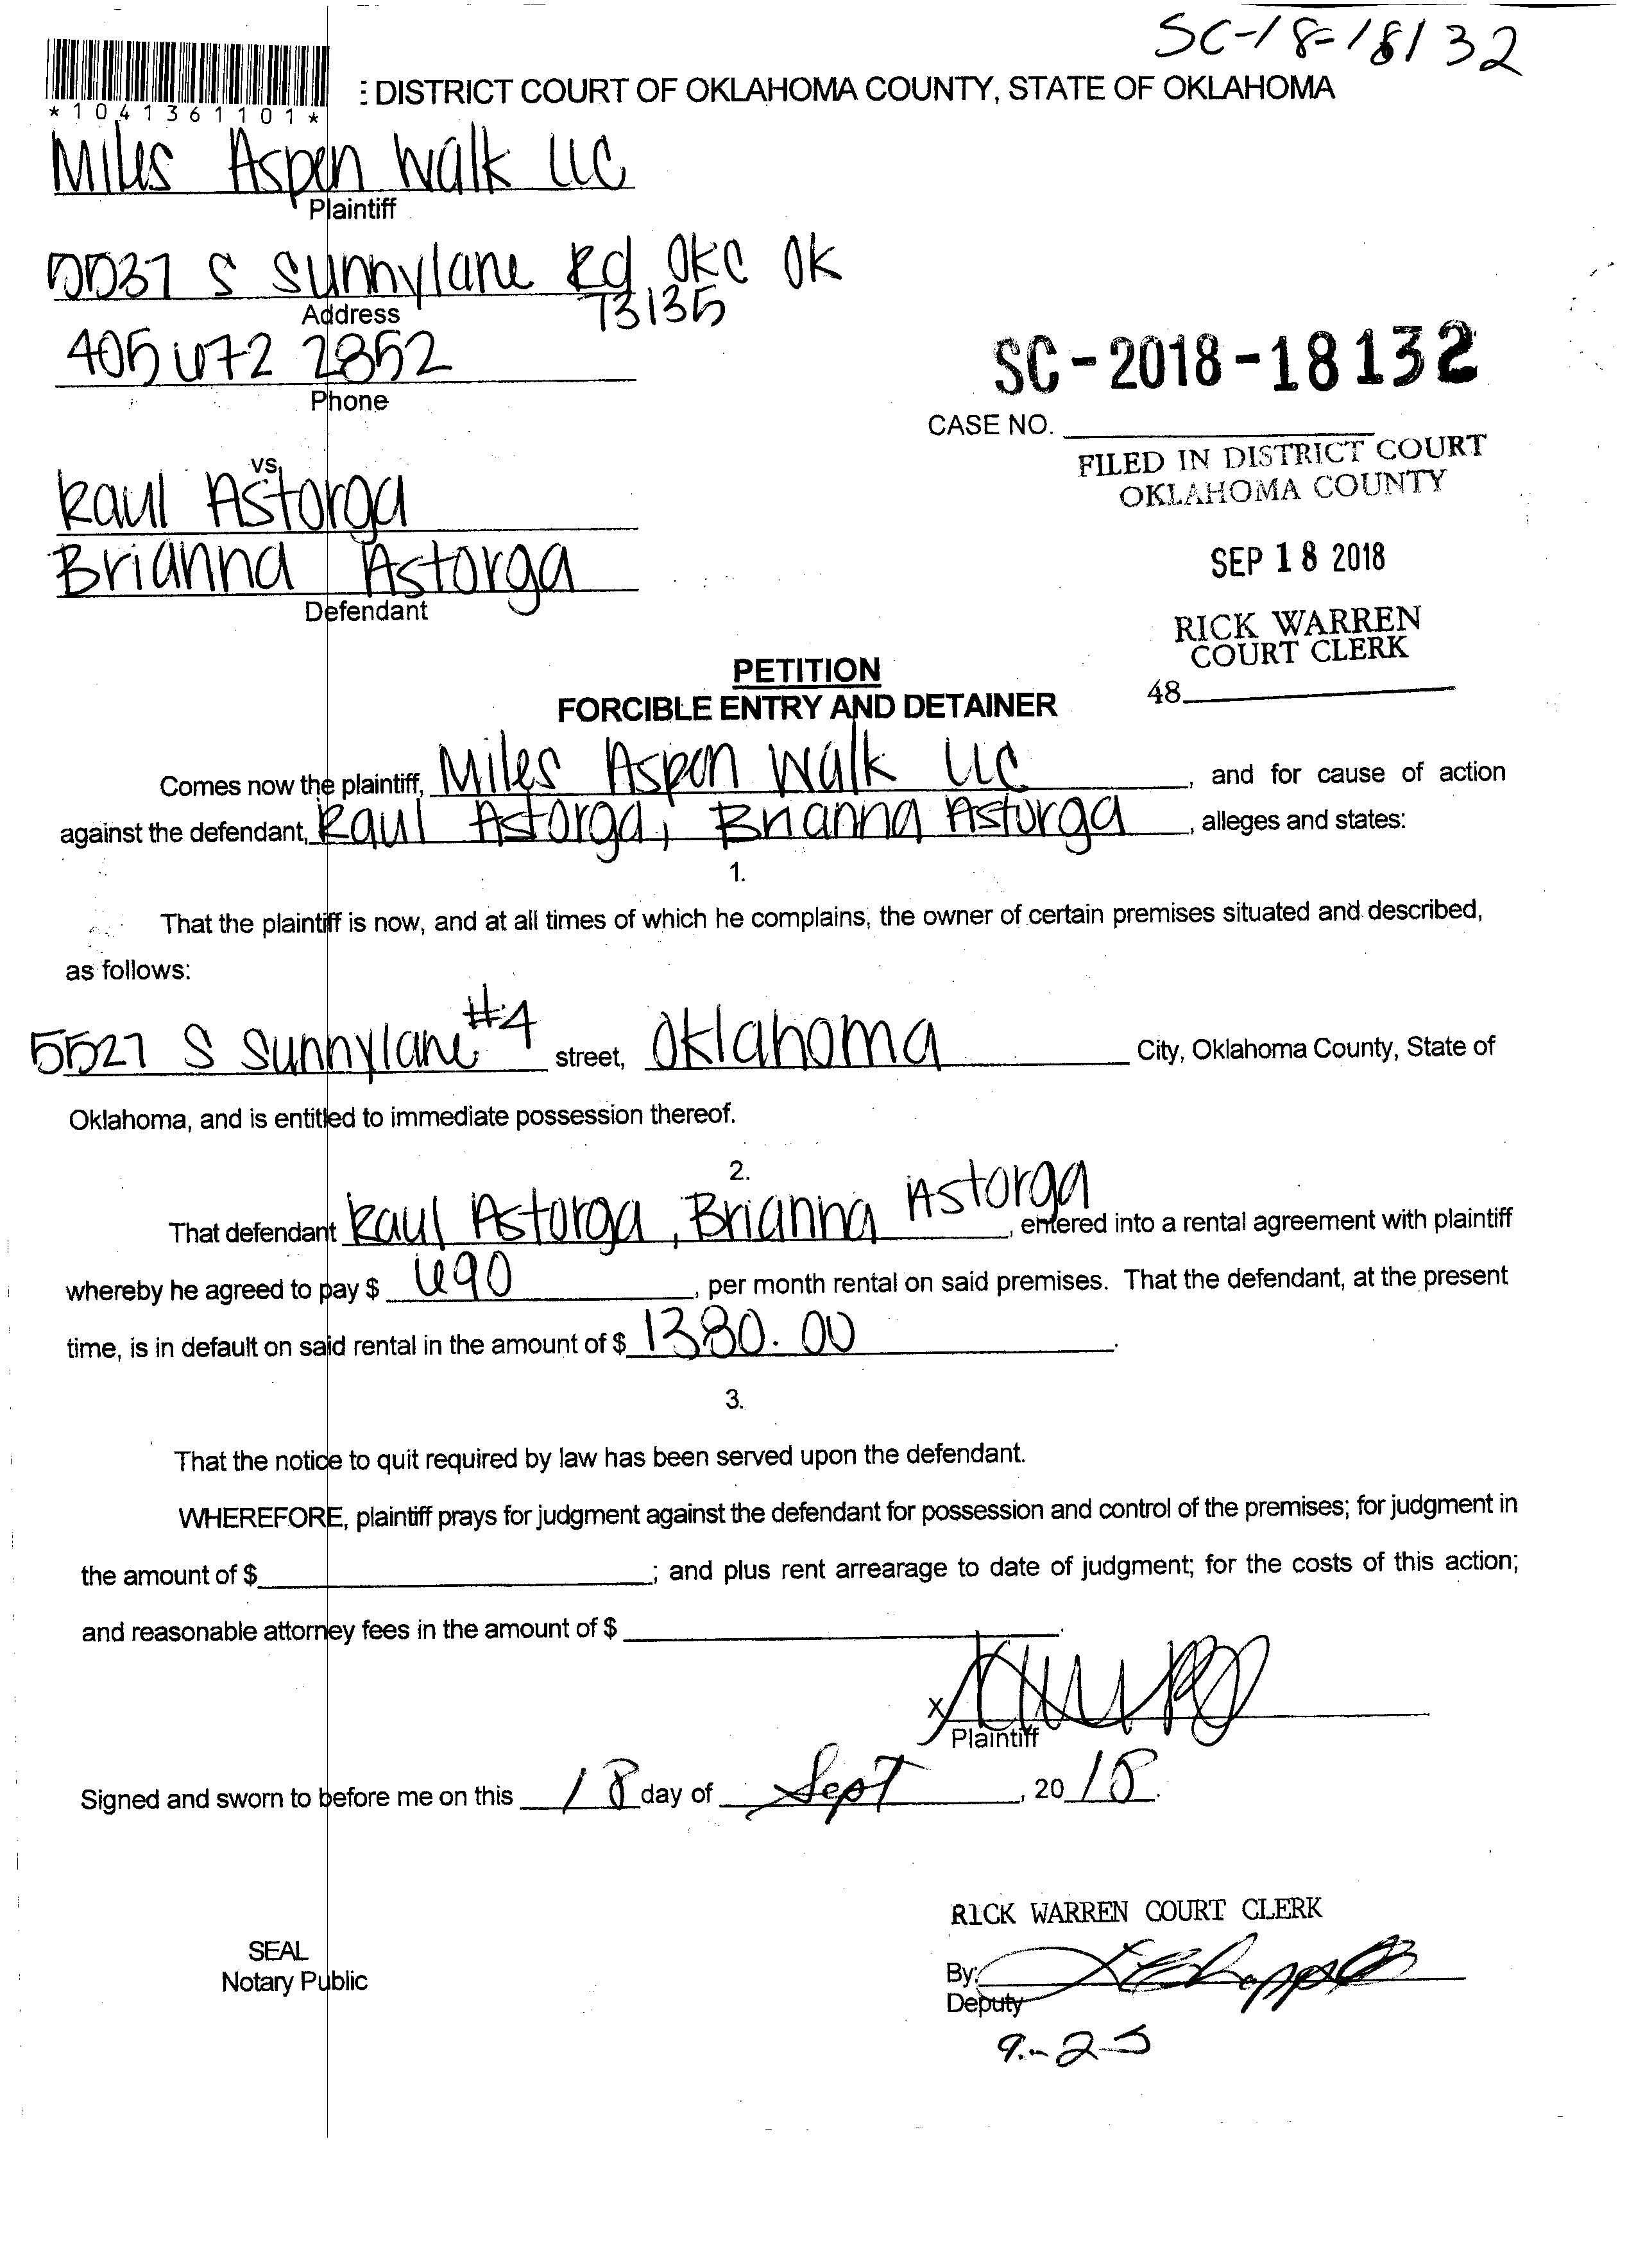 SC-18-18132
: DISTRICT COURT OF OKLAHOMA COUNTY, STATE OF OKLAHOMA
*1041361101*
Miles Aspen Walk LLC
Plaintiff
5537 S Sunnylane Rd OKC OK
73135
Address
405 672 2852
Phone
SC-2018-18132
CASE NO.
FILED IN DISTRICT COURT
OKLAHOMA COUNTY
vs.
Raul Astorga
Brianna Astorga
Defendant
SEP 18 2018
RICK WARREN
COURT CLERK
48
PETITION
FORCIBLE ENTRY AND DETAINER
Comes now the plaintiff, Miles Aspen Walk LLC, and for cause of action
against the defendant, Raul Astorga, Brianna Astorga, alleges and states:
1.
That the plaintiff is now, and at all times of which he complains, the owner of certain premises situated and described,
as follows:
5527 S Sunnylane #4 street, Oklahoma City, Oklahoma County, State of
Oklahoma, and is entitled to immediate possession thereof.
2.
That defendant Raul Astorga, Brianna Astorga, entered into a rental agreement with plaintiff
whereby he agreed to pay $ 690, per month rental on said premises. That the defendant, at the present
time, is in default on said rental in the amount of $ 1380.00.
3.
That the notice to quit required by law has been served upon the defendant.
WHEREFORE, plaintiff prays for judgment against the defendant for possession and control of the premises; for judgment in
the amount of $ ; and plus rent arrearage to date of judgment; for the costs of this action;
and reasonable attorney fees in the amount of $ .
X
Plaintiff
Signed and sworn to before me on this 18 day of Sept, 2018.
RICK WARREN COURT CLERK
SEAL
Notary Public
By:
Deputy
9-25